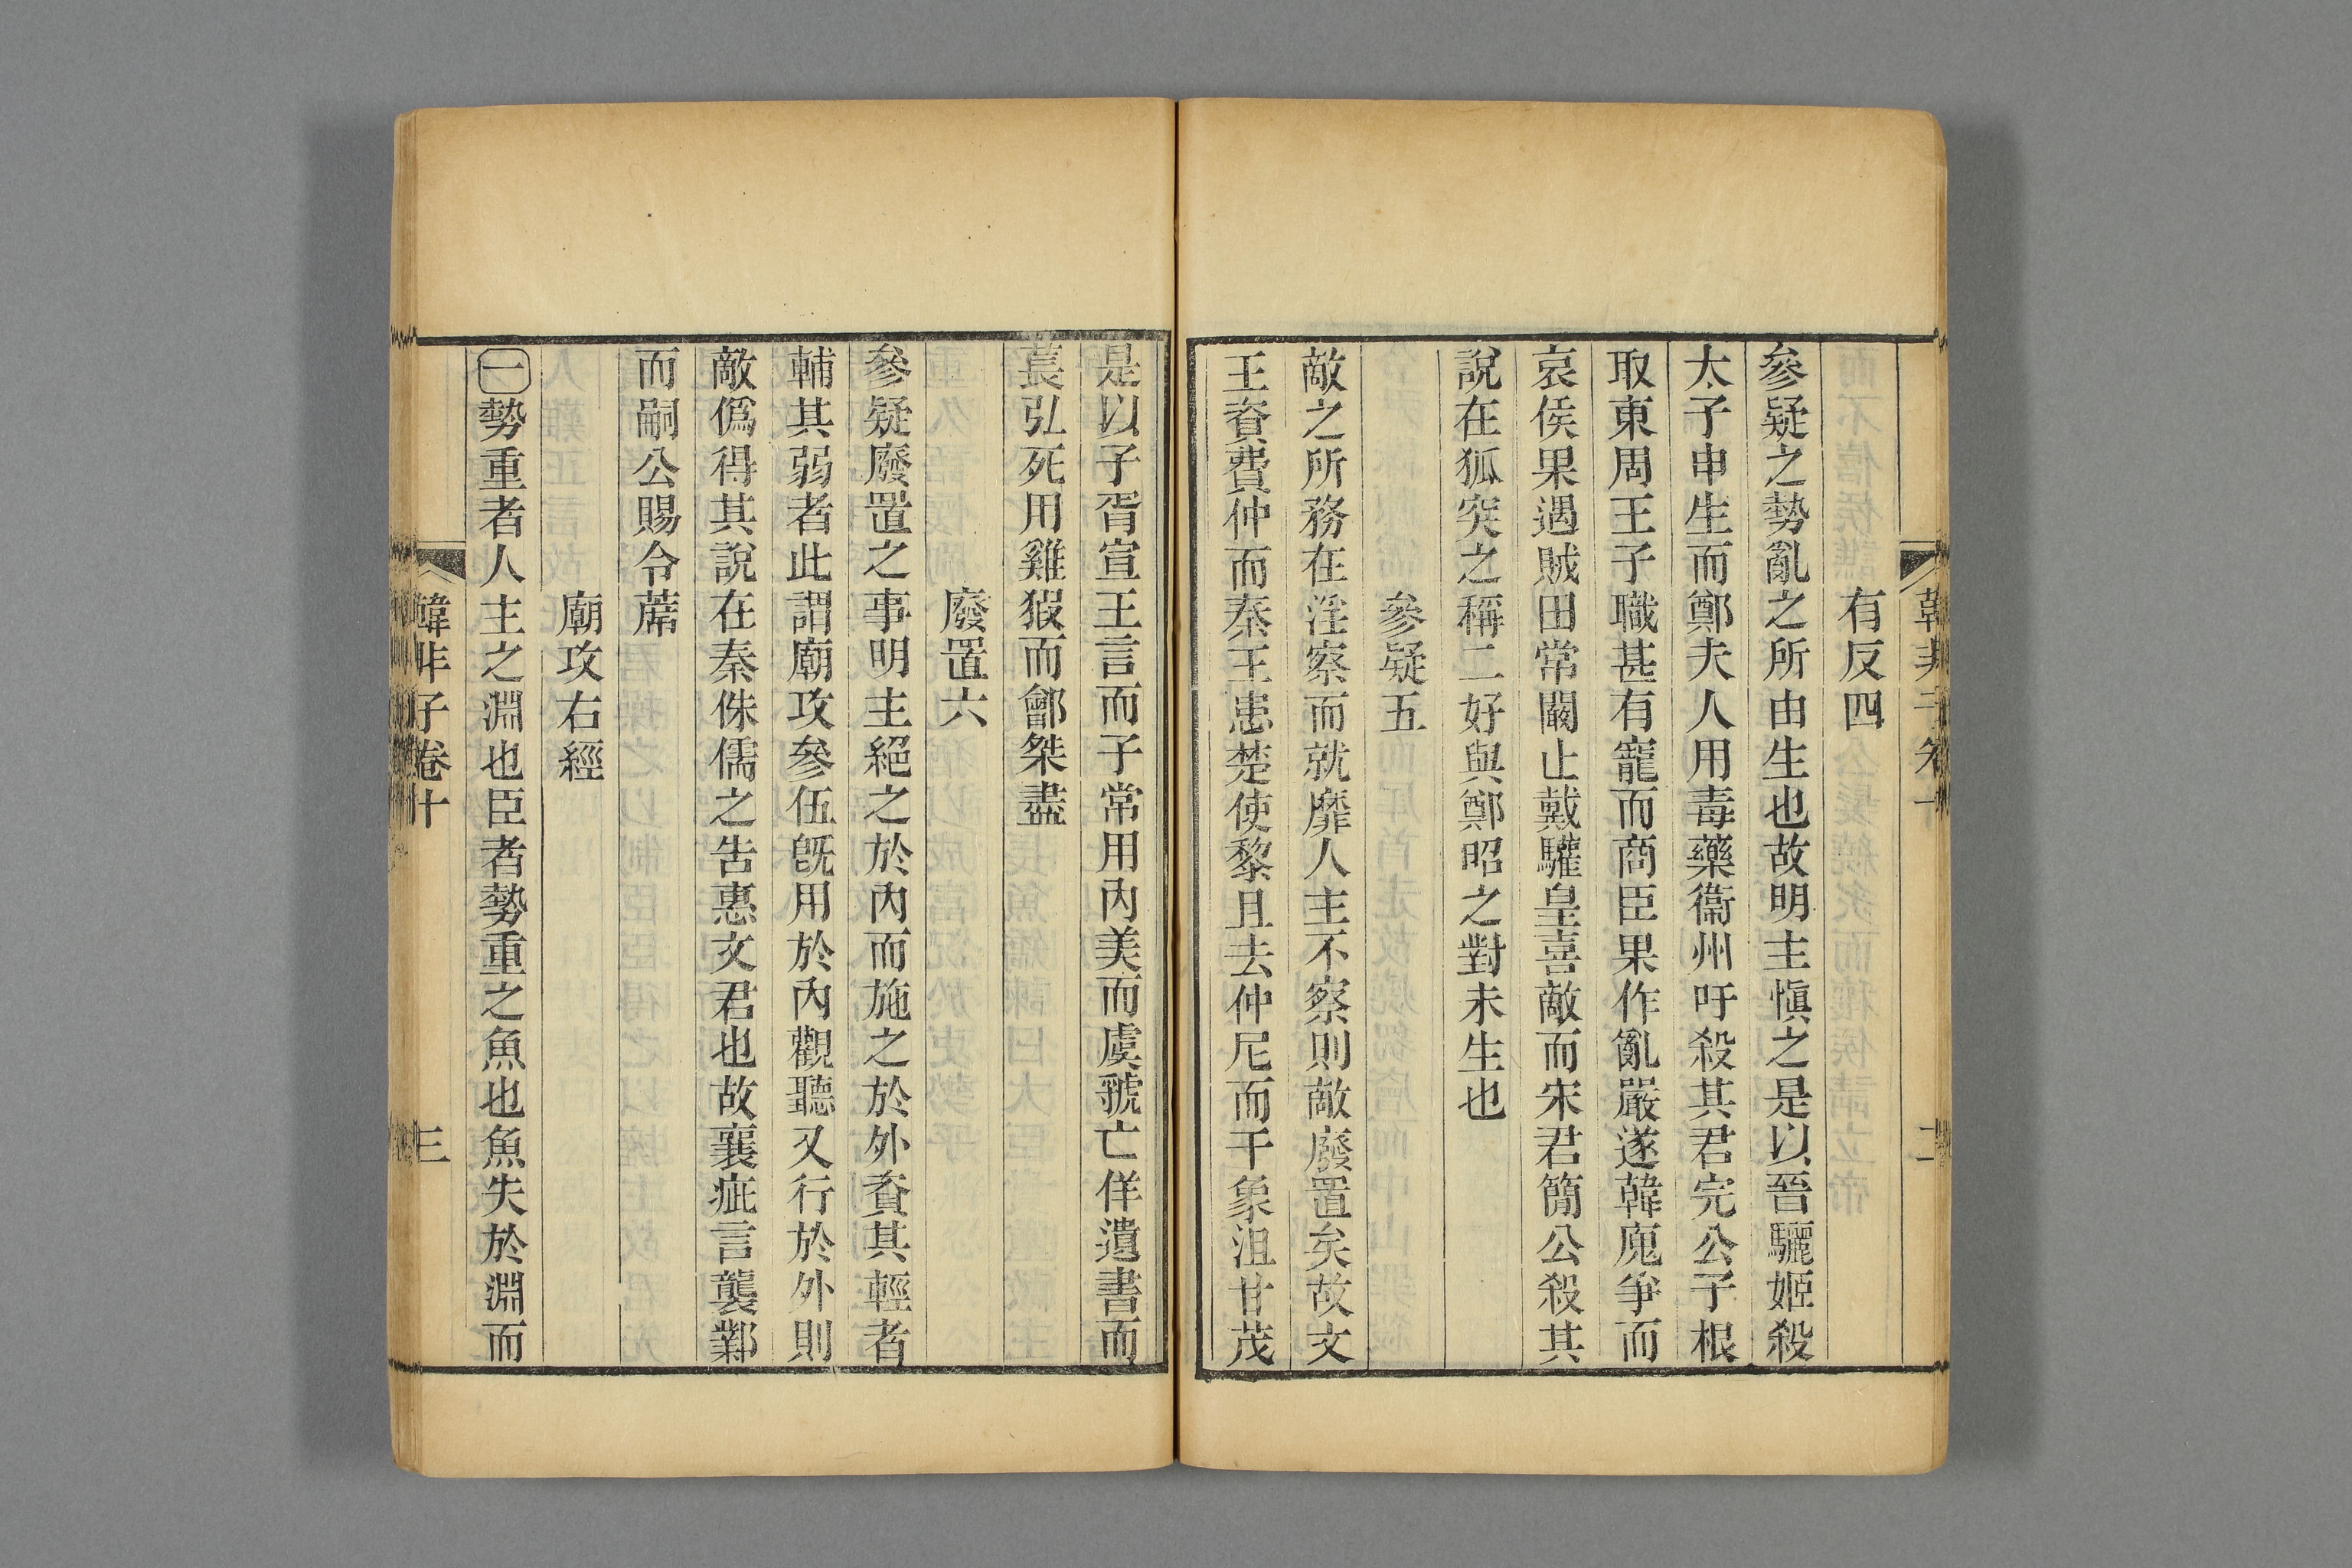 韓非子卷十
二
有反四
參疑之勢亂之所由生也故明主愼之是以晉驪姬殺
太子申生而鄭夫人用毒藥衞州吁殺其君完公子根
取東周王子職甚有寵而商臣果作亂嚴遂韓廆爭而
哀侯果遇賊田常闞止戴驩皇喜敵而宋君簡公殺其
說在狐突之稱二好與鄭昭之對未生也
參疑五
敵之所務在淫察而就靡人主不察則敵廢置矣故文
王資費仲而秦王患楚使黎且去仲尼而干象沮甘茂
是以子胥宣王言而子常用內美而虞虢亡佯遺書而
萇弘死用雞猳而鄶桀盡
廢置六
參疑廢置之事明主絕之於內而施之於外資其輕者
輔其弱者此謂廟攻參伍旣用於內觀聽又行於外則
敵僞得其說在秦侏儒之告惠文君也故襄疵言襲鄴
而嗣公賜令蓆
廟攻右經
一勢重者人主之淵也臣者勢重之魚也魚失於淵而
韓非子卷十
三